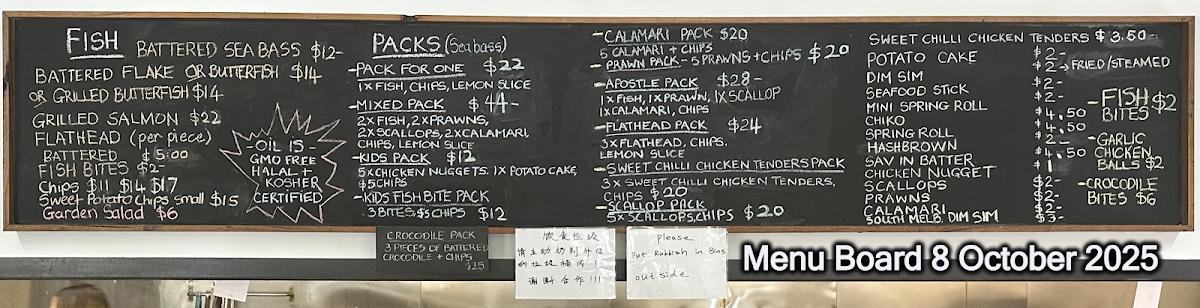 FISH
BATTERED SEA BASS $12-
BATTERED FLAKE OR BUTTERFISH $14
OR GRILLED BUTTERFISH $14
GRILLED SALMON $22
FLATHEAD (per piece)
BATTERED $5.00
FISH BITES $2-
Chips $11 $14 $17
Sweet Potato Chips small $15
Garden Salad $6
- OIL IS -
GMO FREE
HALAL +
KOSHER
CERTIFIED
PACKS (Sea bass)
- PACK FOR ONE $22
1 x FISH, CHIPS, LEMON SLICE
- MIXED PACK $44-
2 x FISH, 2 x PRAWNS,
2 x SCALLOPS, 2 x CALAMARI,
CHIPS, LEMON SLICE
- KIDS PACK $12
5 x CHICKEN NUGGETS. 1 x POTATO CAKE,
$5 CHIPS
- KIDS FISH BITE PACK
3 BITES, $5 CHIPS $12
- CALAMARI PACK $20
5 CALAMARI + CHIPS
- PRAWN PACK - 5 PRAWNS + CHIPS $20
- APOSTLE PACK $28-
1 x FISH, 1 x PRAWN, 1 x SCALLOP
1 x CALAMARI, CHIPS
- FLATHEAD PACK $24
3 x FLATHEAD, CHIPS.
LEMON SLICE
- SWEET CHILLI CHICKEN TENDERS PACK
3 x SWEET CHILLI CHICKEN TENDERS,
CHIPS $20
- SCALLOP PACK
5 x SCALLOPS, CHIPS $20
SWEET CHILLI CHICKEN TENDERS $3.50-
POTATO CAKE $2-
DIM SIM $2- FRIED/STEAMED
SEAFOOD STICK $2-
MINI SPRING ROLL $2-
CHIKO $4.50
SPRING ROLL $4.50
HASHBROWN $2-
SAV IN BATTER $4.50
CHICKEN NUGGET $1
SCALLOPS $2-
PRAWNS $2-
CALAMARI $2-
SOUTH MELB. DIM SIM $3-
- FISH $2
BITES
- GARLIC
CHICKEN
BALLS $2
- CROCODILE
BITES $6
CROCODILE PACK
3 PIECES OF BATTERED
CROCODILE + CHIPS
$25
请主动
谢谢合作!!!
please
Put Rubbish in Bins
outside
Menu Board 8 October 2025